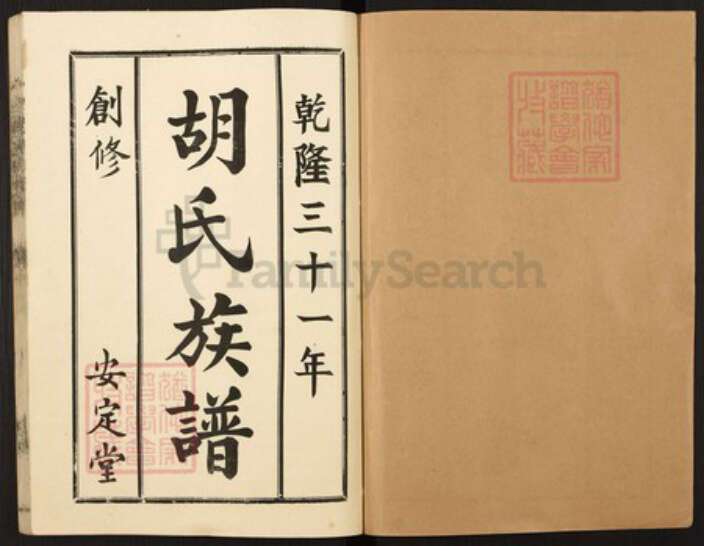 乾隆三十一年
胡氏族譜
創修
安定堂
FamilySearch